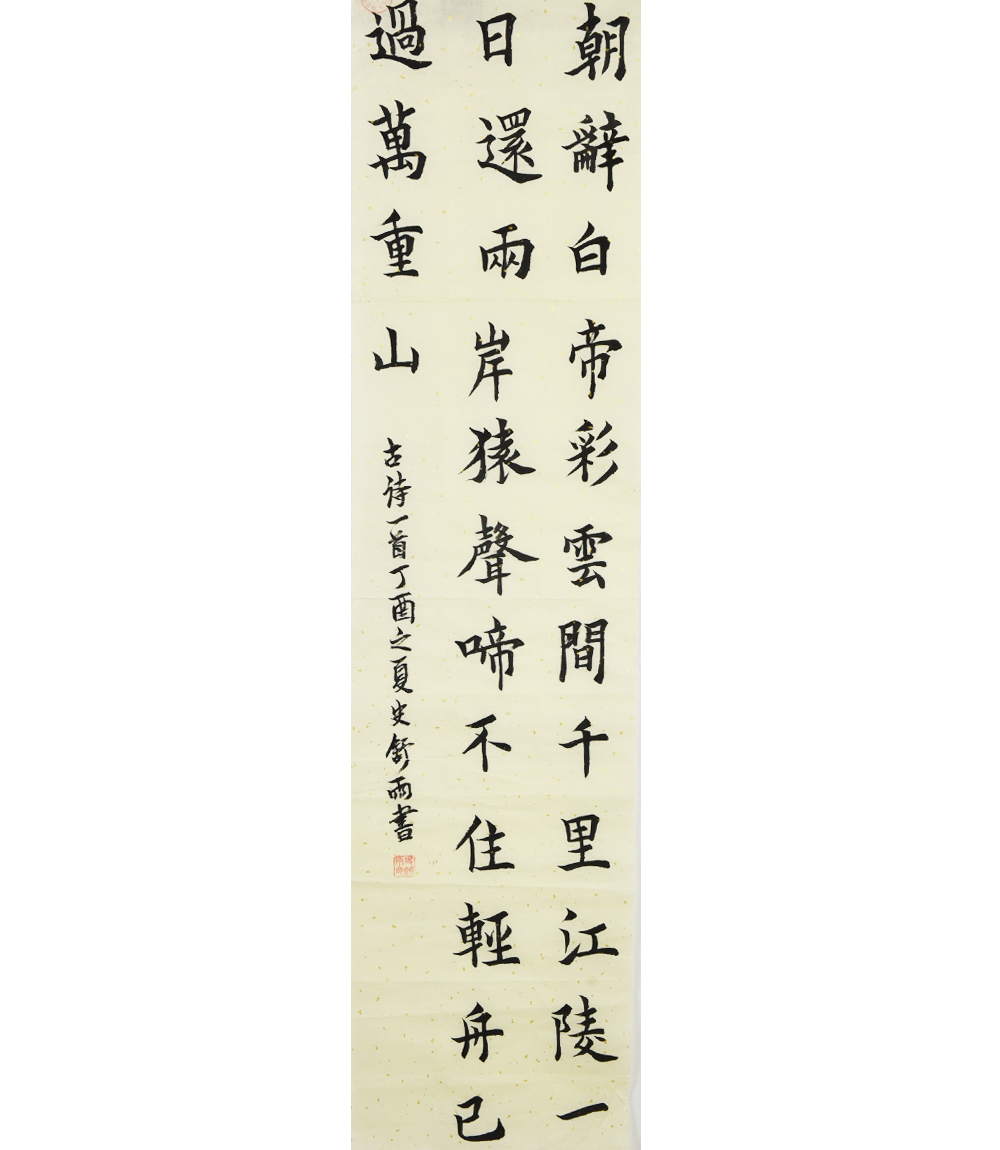 朝辭白帝彩雲間千里江陵一
日還兩岸猿聲啼不住輕舟已
過萬重山
古詩一首丁酉之夏史舒雨書